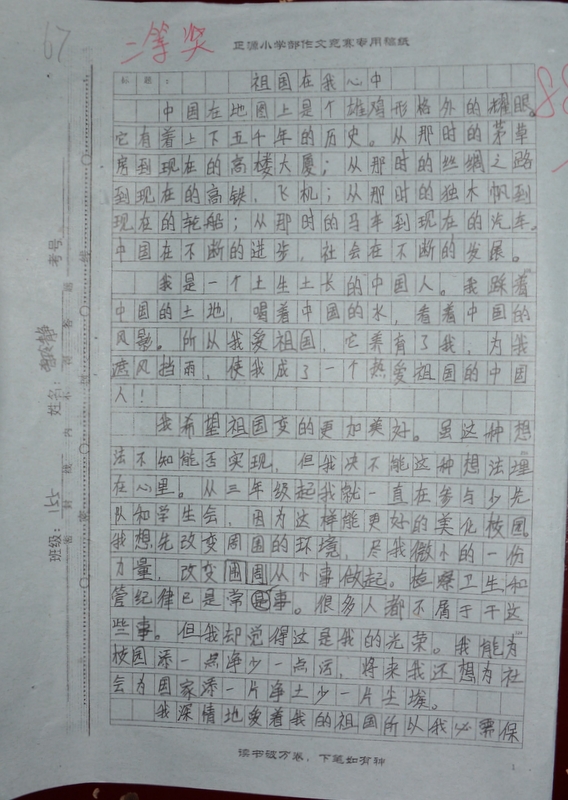 67
二等奖
正源小学部作文竞赛专用稿纸
88
标 题：
祖国在我心中
中国在地图上是个雄鸡形格外的耀眼。
它有着上下五千年的历史。从那时的茅草
房到现在的高楼大厦；从那时的丝绸之路
到现在的高铁，飞机；从那时的独木帆到
现在的轮船；从那时的马车到现在的汽车。
中国在不断的进步，社会在不断的发展。
我是一个土生土长的中国人。我踩着
中国的土地，喝着中国的水，看着中国的
风景。所从我爱祖国，它养育了我，为我
遮风挡雨，使我成了一个热爱祖国的中国
人！
我希望祖国变的更加美好。虽这种想
法不知能否实现，但我决不能这种想法埋
在心里。从三年级起我就一直在参与少先
队和学生会，因为这样能更好的美化校园。
我想先改变周围的环境，尽我微小的一份
力量，改变围周从小事做起。检螺卫生和
管纪律已是常事。很多人都不属于干这
些事。但我却觉得这是我的光荣。我能为
校园添一点净少一点污，将来我还想为社
会为国家添一片净土少一片尘埃。
我深情地爱着我的祖国所以我必要保
读书破万卷，下笔如有神
1
考号
姓名：
班级：